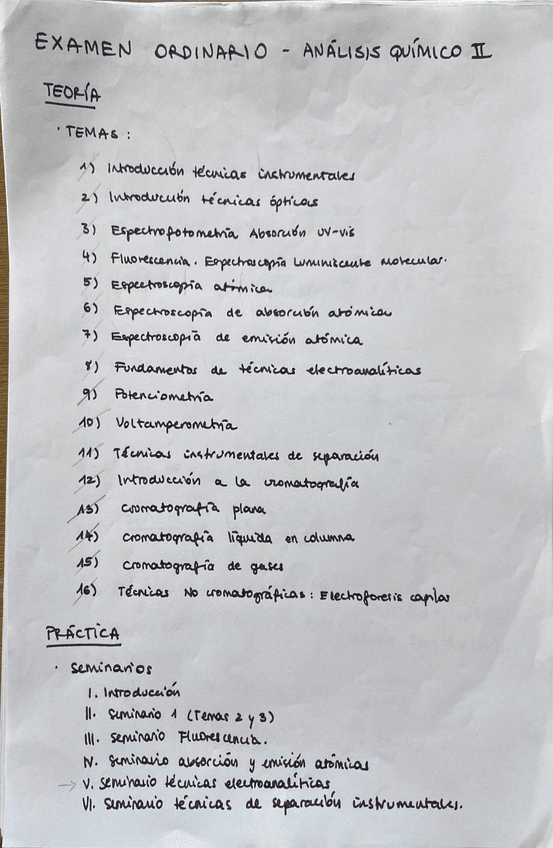 EXAMEN ORDINARIO - ANÁLISIS QUÍMICO II
TEORÍA
· TEMAS :
1) Introducción técnicas instrumentales
2) Introducción técnicas ópticas
3) Espectrofotometría Absorción UV-vis
4) Fluorescencia. Espectroscopía Luminiscente Molecular.
5) Espectroscopía atómica
6) Espectroscopía de absorción atómica
7) Espectroscopía de emisión atómica
8) Fundamentos de técnicas electroanalíticas
9) Potenciometría
10) Voltamperometría
11) Técnicas instrumentales de separación
12) Introducción a la cromatografía
13) Cromatografía plana
14) Cromatografía líquida en columna
15) Cromatografía de gases
16) Técnicas No cromatográficas : Electroforesis capilar
PRÁCTICA
· Seminarios
I. Introducción
II. Seminario 1 (Temas 2 y 3)
III. Seminario Fluorescencia.
IV. Seminario absorción y emisión atómicas
→ V. Seminario técnicas electroanalíticas
VI. Seminario técnicas de separación instrumentales.